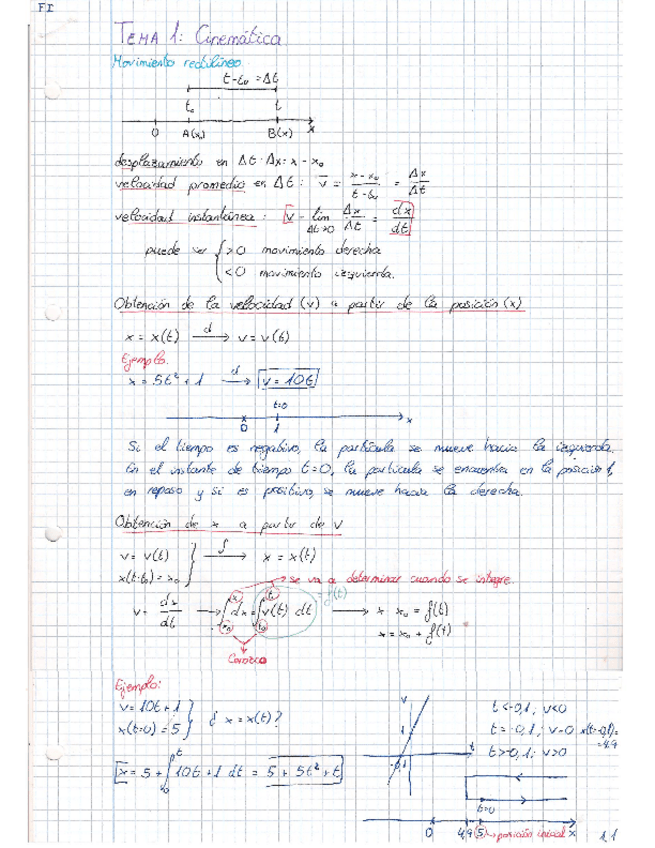 FI
TEMA 1: Cinemática
Movimiento rectilíneo
t-t₀ = Δt
t₀ t
0 A(x₀) B(x) x
desplazamiento en Δt: Δx = x - x₀
velocidad promedio en Δt: v̅ = (x - x₀)/(t - t₀) = Δx/Δt
velocidad instantánea: v = lim Δt→0 Δx/Δt = dx/dt
puede ser { >0 movimiento derecha
<0 movimiento izquierda.
Obtención de la velocidad (v) a partir de la posición (x)
x = x(t) —d→ v = v(t)
Ejemplo.
x = 5t² + 1 —d→ v = 10t
t=0
0 1 x
Si el tiempo es negativo, la partícula se mueve hacia la izquierda.
En el instante de tiempo t=0, la partícula se encuentra en la posición 1,
en reposo y si es positivo, se mueve hacia la derecha.
Obtención de x a partir de v
v = v(t) } —∫→ x = x(t)
x(t=t₀) = x₀
→ se va a determinar cuando se integre.
v = dx/dt → ∫ₓ₀ˣ dx = ∫ₜ₀ᵗ v(t) dt = f(t) → x - x₀ = f(t)
x = x₀ + f(t)
Conozco
Ejemplo:
v = 10t + 1 } ¿ x = x(t) ?
x(t=0) = 5
x = 5 + ∫₀ᵗ 10t + 1 dt = 5 + 5t² + t
v
1
t
-0,1
t<-0,1; v<0
t=-0,1; v=0 x(t=-0,1)=
=4,9
t>-0,1; v>0
t=0
0 4,9 (5) → posición inicial x
1.1